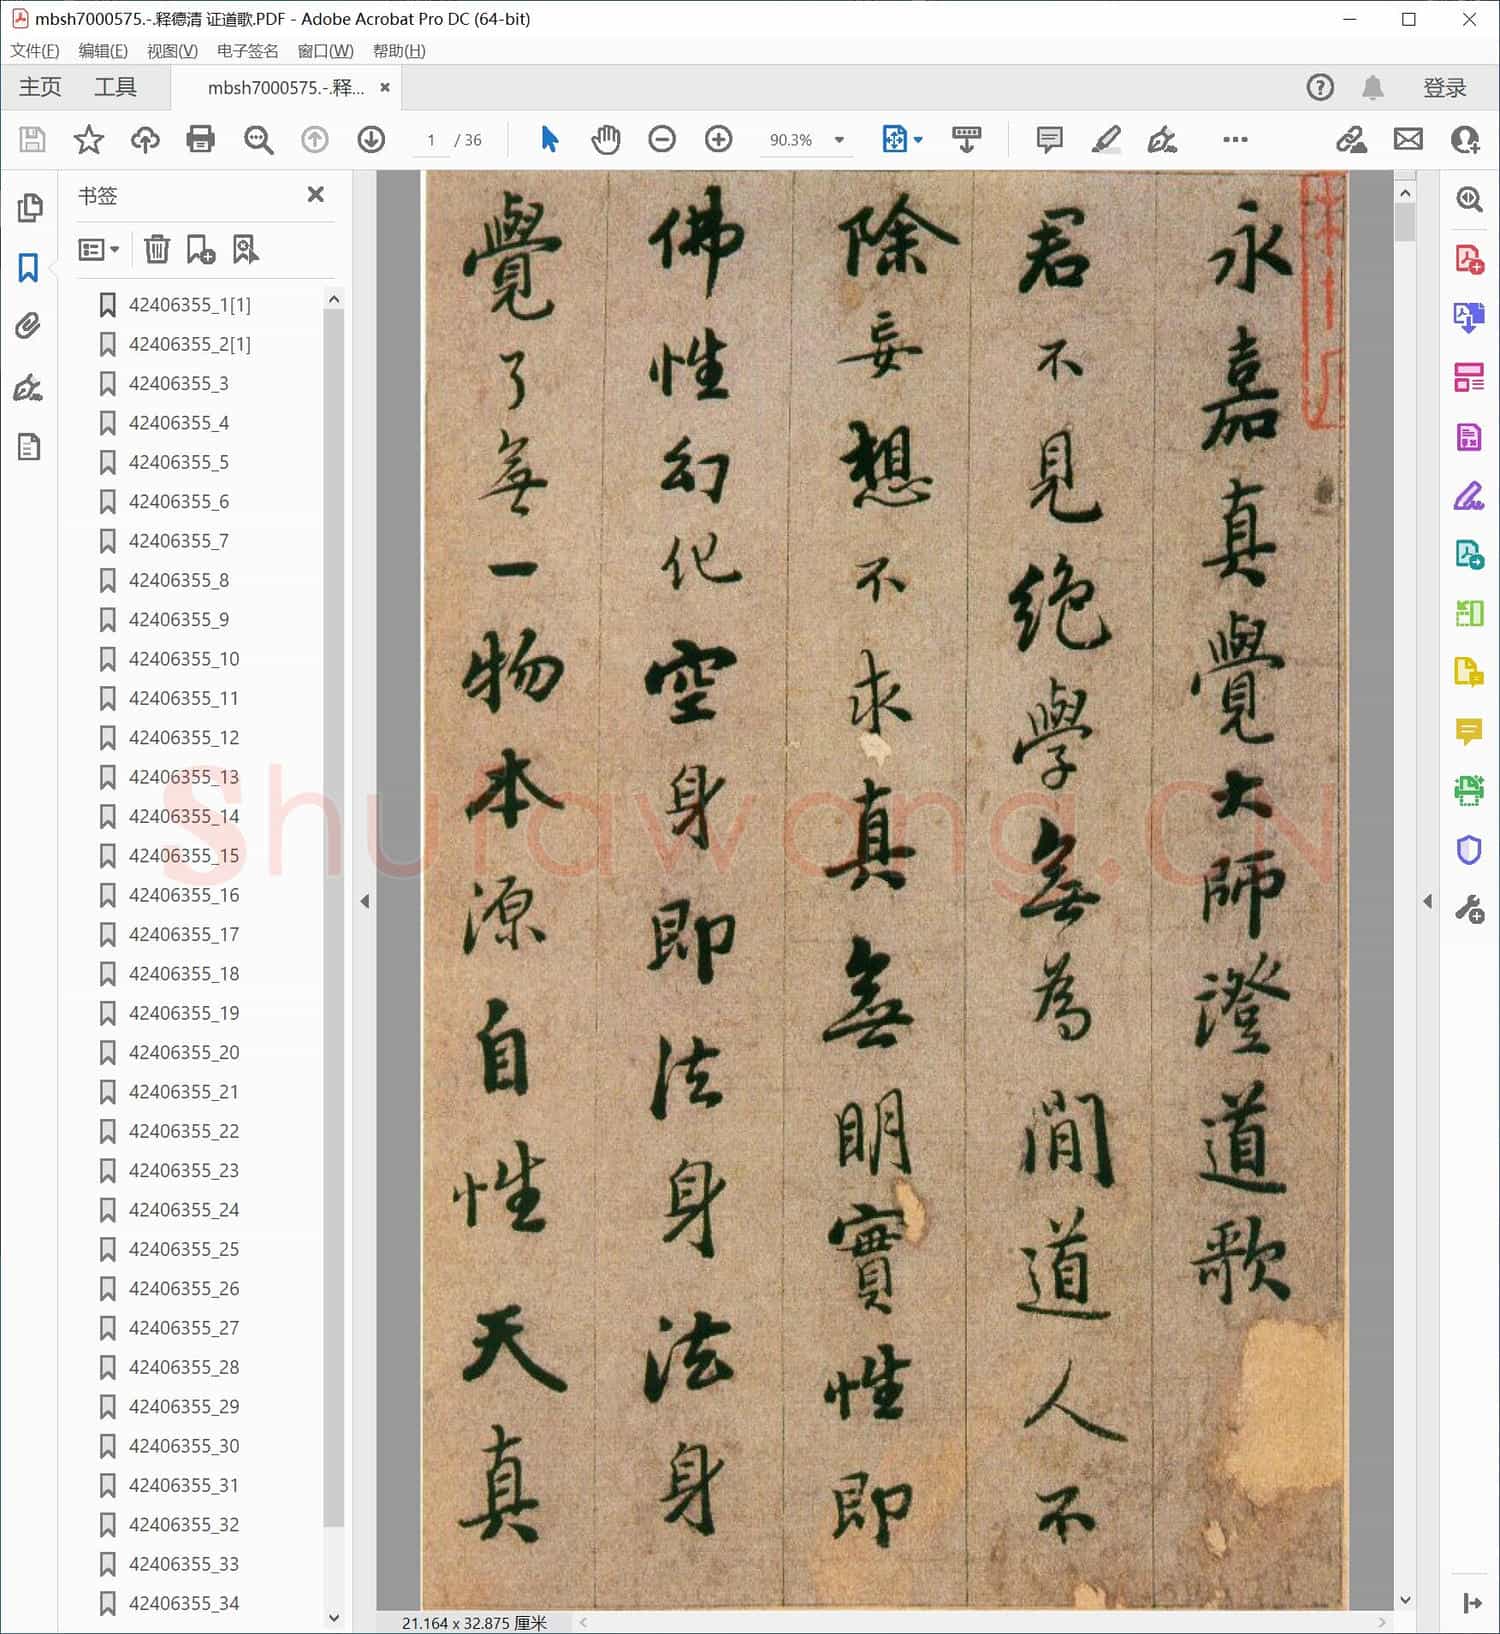 mbsh7000575.-.释德清 证道歌.PDF - Adobe Acrobat Pro DC (64-bit)
文件(F) 编辑(E) 视图(V) 电子签名 窗口(W) 帮助(H)
主页 工具 mbsh7000575.-.释... 登录
1 / 36 90.3%
书签
42406355_1[1]
42406355_2[1]
42406355_3
42406355_4
42406355_5
42406355_6
42406355_7
42406355_8
42406355_9
42406355_10
42406355_11
42406355_12
42406355_13
42406355_14
42406355_15
42406355_16
42406355_17
42406355_18
42406355_19
42406355_20
42406355_21
42406355_22
42406355_23
42406355_24
42406355_25
42406355_26
42406355_27
42406355_28
42406355_29
42406355_30
42406355_31
42406355_32
42406355_33
42406355_34
永嘉真覺大師澄道歌
君不見絕學無為閒道人不
除妄想不求真無明實性即
佛性幻化空身即法身法身
覺了無一物本源自性天真
Shufawang.CN
21.164 x 32.875 厘米